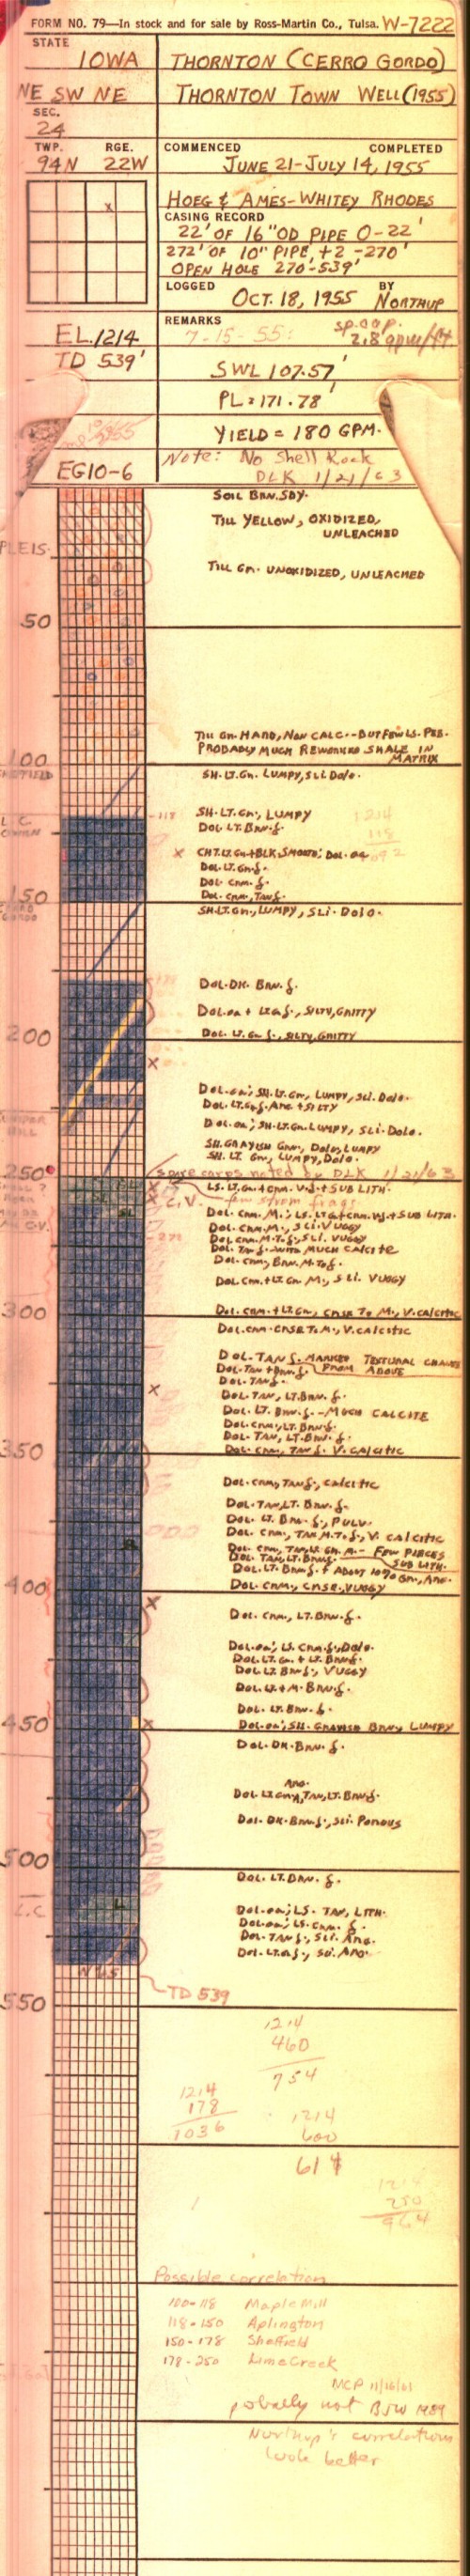 FORM NO. 79—In stock and for sale by Ross-Martin Co., Tulsa. W-7222
STATE
IOWA
THORNTON (CERRO GORDO)
NE SW NE
THORNTON TOWN WELL (1955)
SEC.
24
TWP. RGE.
94N 22W
COMMENCED COMPLETED
JUNE 21-JULY 14, 1955
x
HOEG & AMES-WHITEY RHODES
CASING RECORD
22' OF 16"OD PIPE 0-22'
272' OF 10" PIPE, +2 -270'
OPEN HOLE 270-539'
LOGGED BY
OCT. 18, 1955 NORTHUP
EL. 1214
REMARKS
7-15-55: sp. cap.
2.8 gpm/ft.
TD 539'
SWL 107.57'
PL = 171.78'
YIELD = 180 GPM.
EG10-6
Note: No Shell Rock
DLK 1/21/63
SOIL BRN. SDY.
TILL YELLOW, OXIDIZED,
UNLEACHED
PLEIS.
TILL GN. UNOXIDIZED, UNLEACHED
50
TILL GN. HARD, NON CALC.--BUT FEW LS. PEB.
PROBABLY MUCH REWORKED SHALE IN
MATRIX
100
SH. LT. GN. LUMPY, SLI. DOLO.
118
SH. LT. GN., LUMPY
DOL. LT. BRN. f.
1214
118
x CHT. LT. GN. + BLK. SMOOTH; DOL. aa
DOL. LT. GN. f.
DOL. CRM. f.
DOL. CRM., TAN f.
150
SH. LT. GN., LUMPY, SLI. DOLO.
DOL. DK. BRN. f.
DOL. aa + LT. GN. f., SILTY, GRITTY
200
DOL. LT. GN. f., SILTY, GRITTY
x
DOL. aa; SH. LT. GN. LUMPY, SLI. DOLO.
DOL. LT. GN. f. ARG. + SILTY
DOL. aa; SH. LT. GN. LUMPY, SLI. DOLO.
SH. GRAYISH GRN., DOLO., LUMPY
SH. LT. GN., LUMPY, DOLO.
250
spore carps noted by DLK 1/21/63
LS. LT. GN. + CRM. V.f. + SUB LITH.
C.V.
few strom frags
DOL. CRM. M.; LS. LT. GN. + CRM. V.f. + SUB LITH.
DOL. CRM. M., SLI. VUGGY
DOL. CRM. M. T. f., SLI. VUGGY
DOL. TAN f. WITH MUCH CALCITE
DOL. CRM., BRN. M. T. f.
DOL. CRM. + LT. GN. M., SLI. VUGGY
300
DOL. CRM. + LT. GN., CRSE TO M., V. CALCITIC
DOL. CRM. CRSE T. M., V. CALCITIC
DOL. TAN f. MARKED TEXTURAL CHANGE
FROM ABOVE
DOL. TAN + BRN. f.
DOL. TAN f.
x
DOL. TAN, LT. BRN. f.
DOL. LT. BRN. f. - MUCH CALCITE
DOL. CRM., LT. BRN. f.
DOL. TAN, LT. BRN. f.
350
DOL. CRM., TAN f. V. CALCITIC
DOL. CRM., TAN f., CALCITIC
DOL. TAN, LT. BRN. f.
DOL. LT. BRN. f., PULV.
DOL. CRM., TAN M. T. f., V. CALCITIC
DOL. CRM., TAN, LT. GN. M. - FEW PIECES
SUB LITH.
DOL. TAN, LT. BRN. f.
DOL. LT. BRN. f. + ABOUT 10% GN., ARG.
400
DOL. CRM., CRSE., VUGGY
x
DOL. CRM., LT. BRN. f.
DOL. aa; LS. CRM. f., DOLO.
DOL. LT. GN. + LT. BRN. f.
DOL. LT. BRN. f., VUGGY
DOL. LT. + M. BRN. f.
DOL. LT. BRN. f.
450
x DOL. aa; SH. GRAYISH BRN., LUMPY
DOL. DK. BRN. f.
ARG.
DOL. LT. GRY., TAN, LT. BRN. f.
DOL. DK. BRN. f., SLI. POROUS
500
DOL. LT. BRN. f.
L.C
L
DOL. aa; LS. TAN, LITH.
DOL. aa; LS. CRM. f.
DOL. TAN f., SLI. ARG.
DOL. LT. GN. f., SLI. ARG.
NLS
TD 539
550
1214
460
754
1214
178
1036
1214
600
614
1214
250
964
Possible correlation
100-118 Maple Mill
118-150 Aplington
150-178 Sheffield
178-250 Lime Creek
MCP 11/16/61
probally not BJW 1989
Northup's correlations
look better